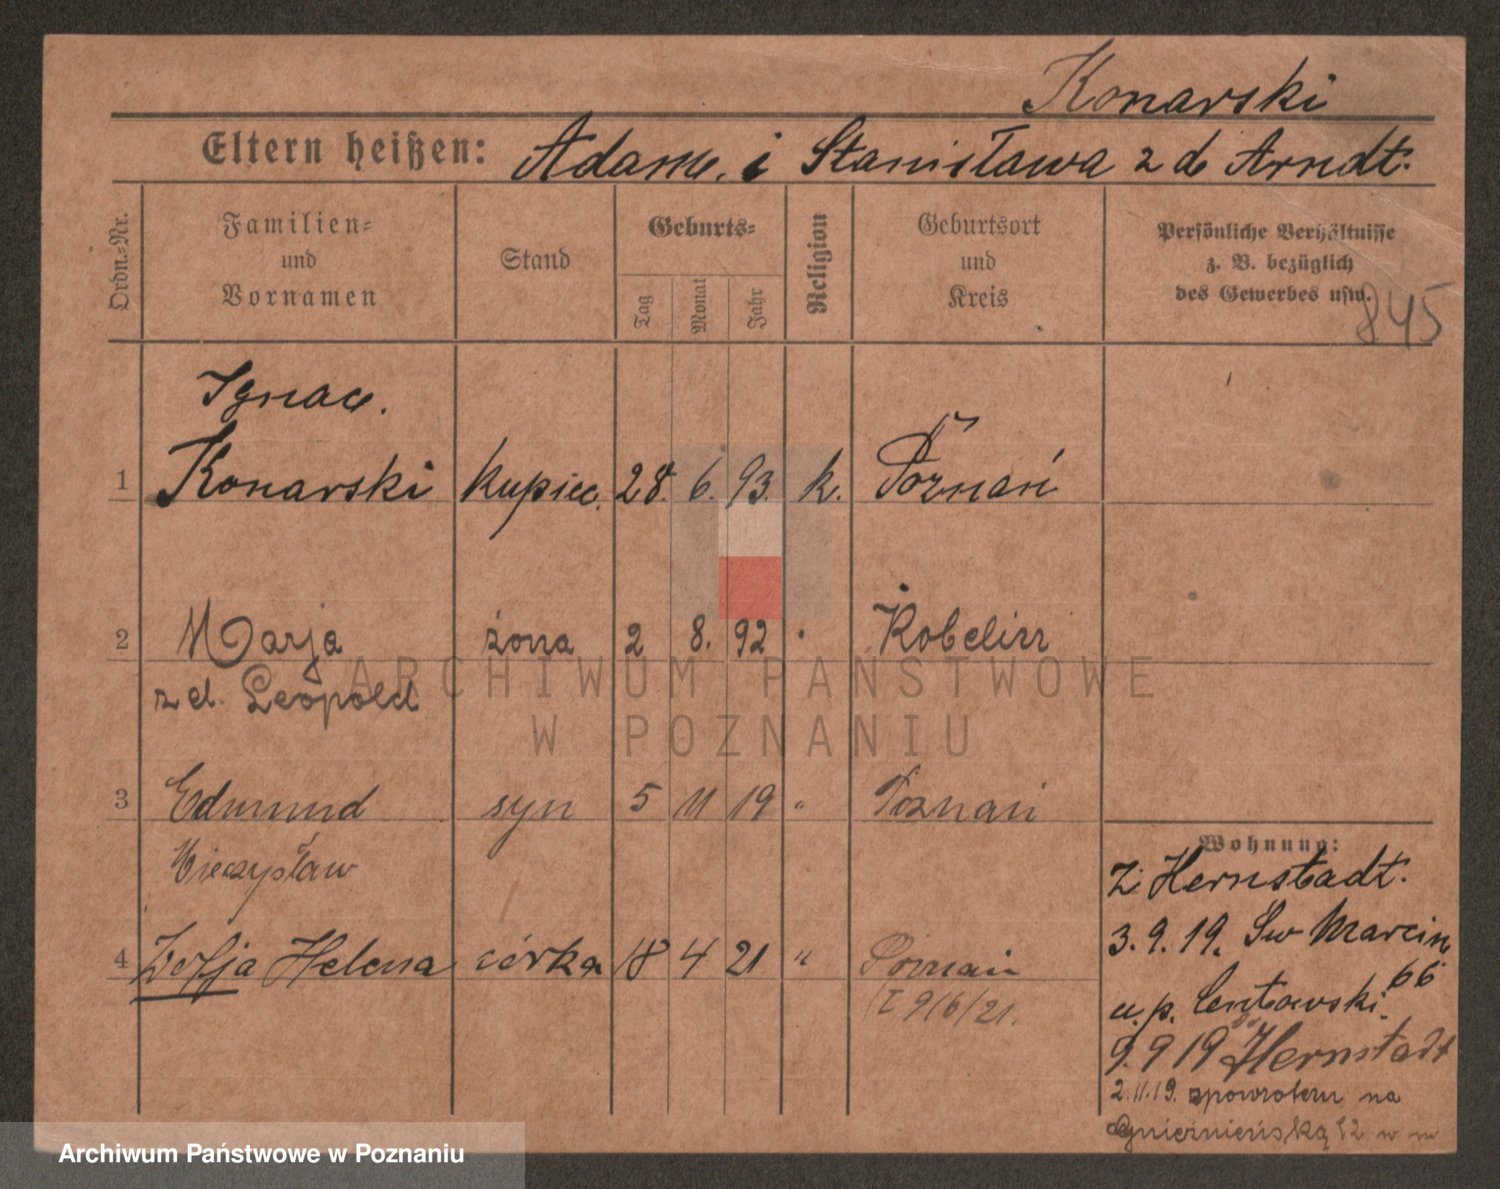 Konarski
Eltern heißen: Adam. i Stanisława z d. Arndt.
Ordn.-Nr.
Familien-
und
Vornamen
Stand
Geburts-
Tag
Monat
Jahr
Religion
Geburtsort
und
Kreis
Persönliche Verhältnisse
z. B. bezüglich
des Gewerbes usw.
845
Ignac.
1 Konarski kupiec. 28. 6. 93. k. Poznań
2 Marja żona 2 8. 92 Kobelin
z d. Leopold
3 Edmund syn 5 11 19 " Poznań
Mieczysław
4 Zofja Helena córka 18 4 21 " Poznań
9/6/21.
Wohnung:
Z Hernstadt.
3.9.19. Św Marcin
66
u. p. Centowski.
9.9 19 Hernstadt
2.11.19. spowrotem na
Gnieźnieńską 12 w m
ARCHIWUM PAŃSTWOWE
W POZNANIU
Archiwum Państwowe w Poznaniu